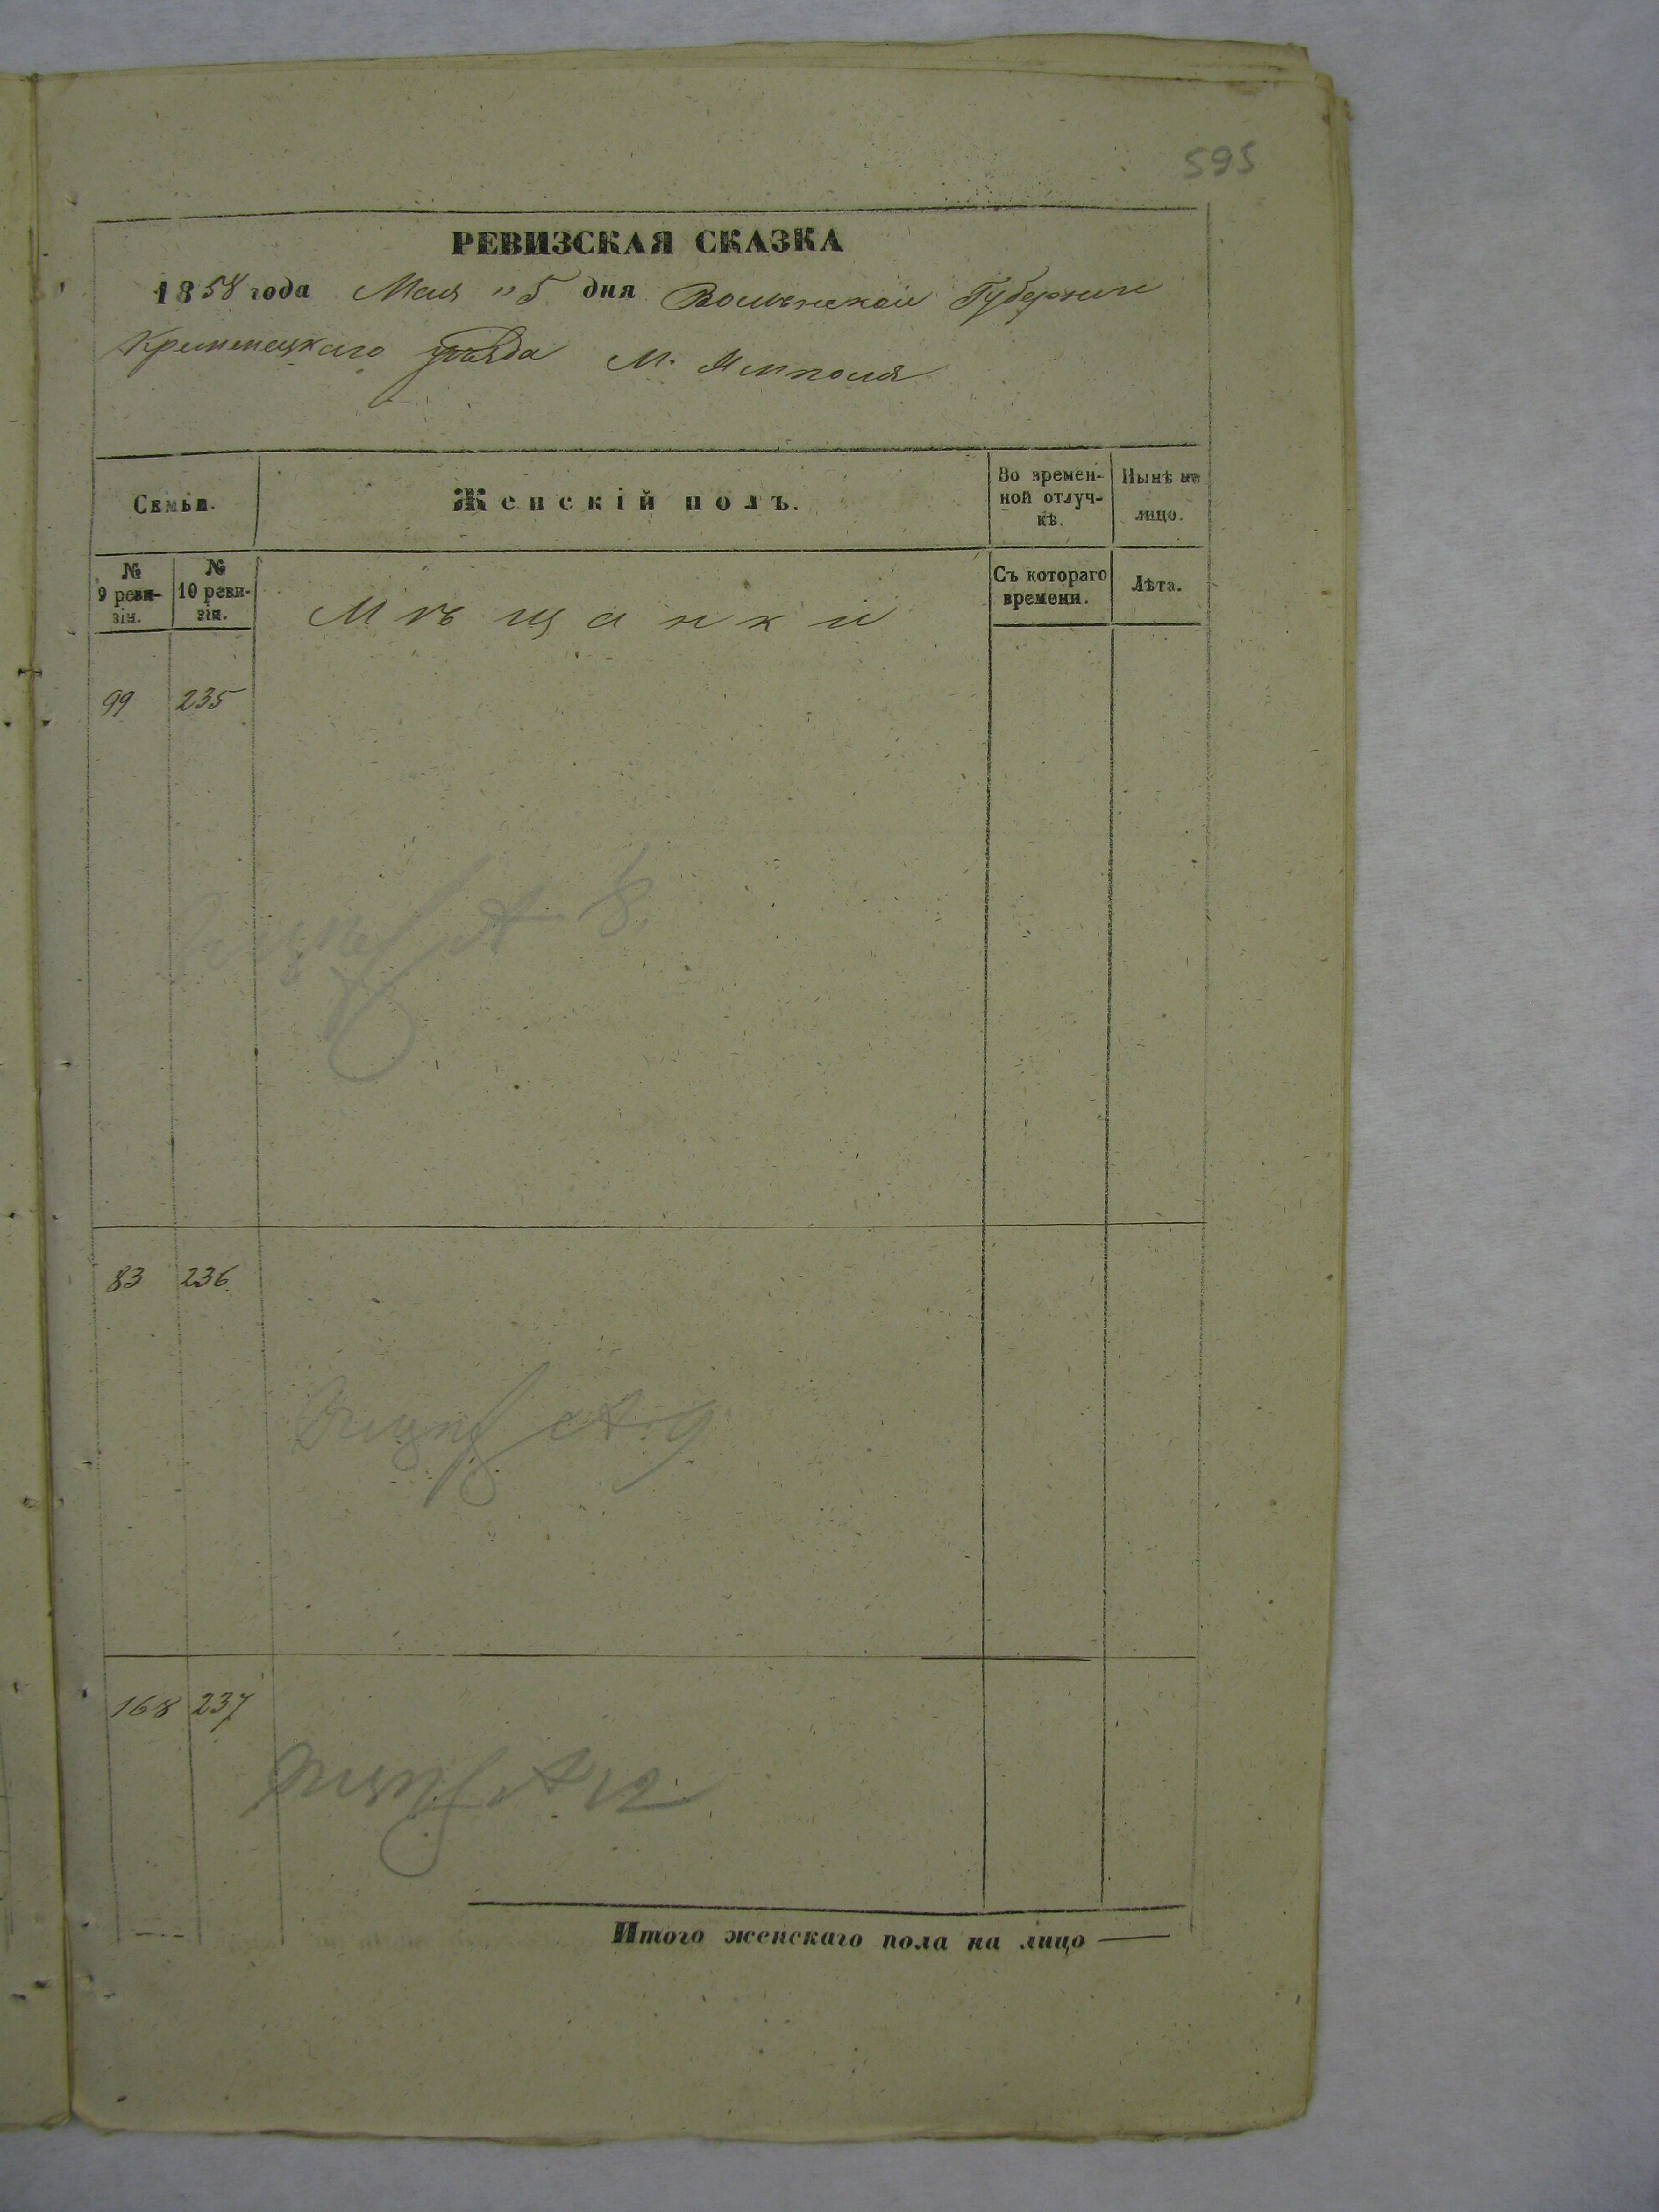 595
РЕВИЗСКАЯ СКАЗКА
1858 года Мая "5 дня Волынской Губернии
Кременецкаго уѣзда М. Ямполя
Семьи.
Женскій полъ.
Во времен-
ной отлуч-
кѣ.
Нынѣ на
лицо.
№
9 реви-
зіи.
№
10 реви-
зіи.
Мѣщанки
Съ котораго
времени.
Лѣта.
99 235
83 236
168 237
Итого женскаго пола на лицо —